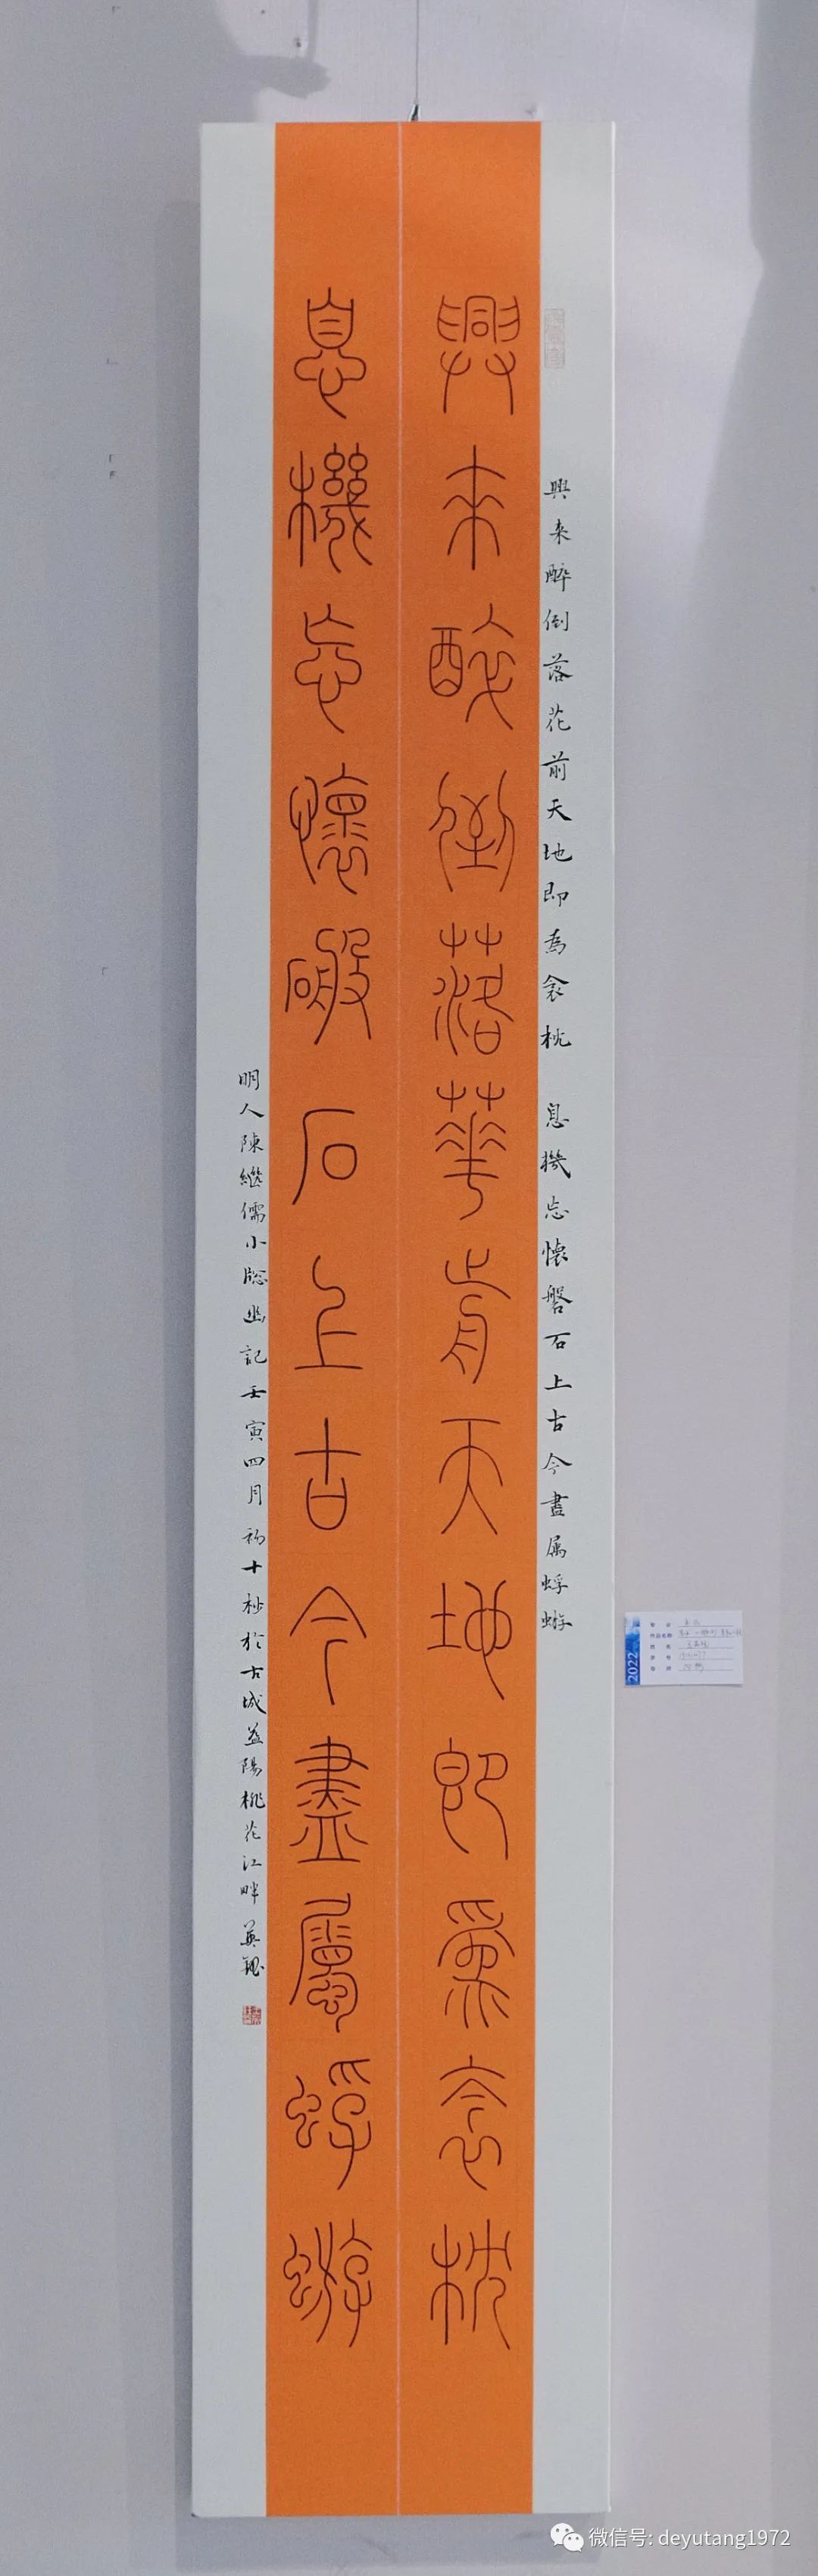 興来醉倒落花前天地即為衾枕 息機忘懷磐石上古今盡属蜉蝣
興來醉倒落華歬天地即爲衾枕
息機忘懷磐石上古今盡屬蜉蝣
明人陳繼儒小窗幽記壬寅四月初十抄於古城益陽桃花江畔
2022
微信号: deyutang1972